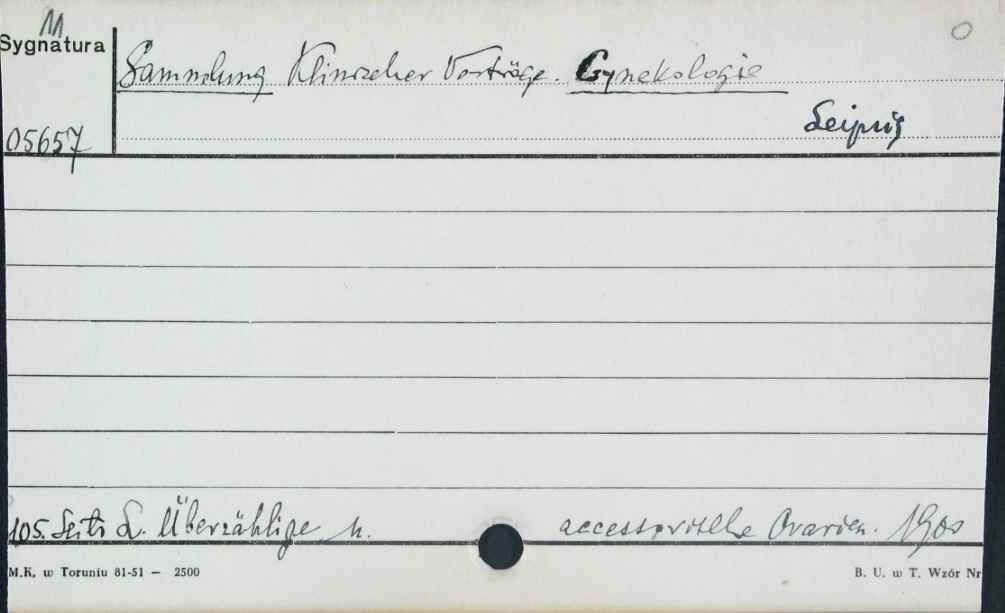 M
Sygnatura
05657
Sammlung Klinischer Vorträge. Gynekologie
Leipzig
105. Seitz L. Überzählige u. accessorische Ovarien. 1900
M.K. w Toruniu 81-51 — 2500
B. U. w T. Wzór Nr